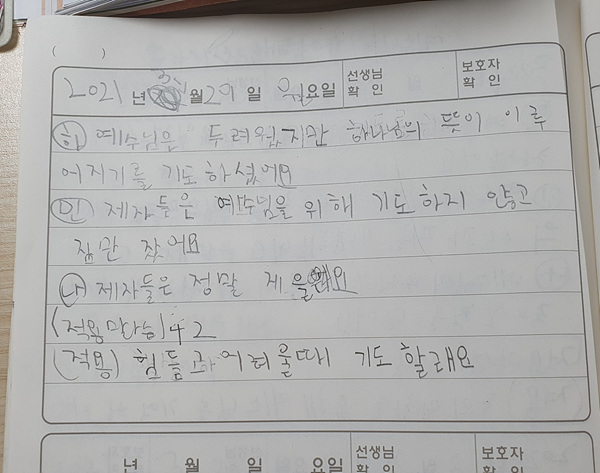 ( )
2021 년 3 월 29 일 월요일 선생님 확 인 보호자 확 인
(하) 예수님은 두려웠지만 하나님의 뜻이 이루
어지기를 기도하셨어요
(인) 제자들은 예수님을 위해 기도하지 않고
잠만 잤어요
(나) 제자들은 정말 게을 요
(적용말씀) 42
(적용) 힘듬과 어려울때 기도 할래요
년 월 일 요일 선생님 확 인 보호자 확 인